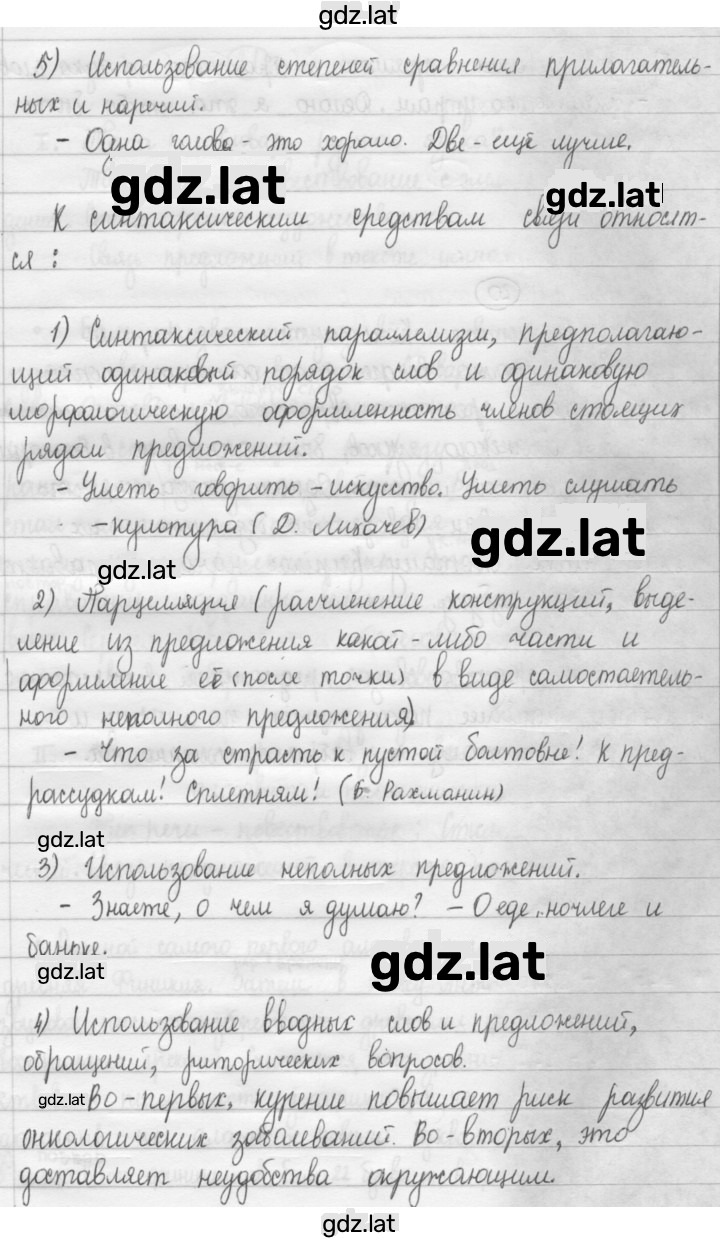 gdz.lat
5) Использование степеней сравнения прилагатель-
ных и наречий.
- Одна голова - это хорошо. Две - ещё лучше.
gdz.lat
gdz.lat
К синтаксическим средствам связи относят-
ся :
1) Синтаксический параллелизм, предполагаю-
щий одинаковый порядок слов и одинаковую
морфологическую оформленность членов стоящих
рядом предложений.
- Уметь говорить - искусство. Уметь слушать
- культура (Д. Лихачев)
gdz.lat
gdz.lat
2) Парцелляция (расчленение конструкций, выде-
ление из предложения какой-либо части и
оформление её (после точки) в виде самостаетель-
ного неполного предложения)
- Что за страсть к пустой болтовне! К пред-
рассудкам! Сплетням! (Б. Рахманин)
gdz.lat
3) Использование неполных предложений.
- Знаете, о чем я думаю? - О еде, ночлеге и
баньке.
gdz.lat
gdz.lat
4) Использование вводных слов и предложений,
обращений, риторических вопросов.
gdz.lat Во-первых, курение повышает риск развития
онкологических заболеваний. Во-вторых, это
доставляет неудобства окружающим.
gdz.lat